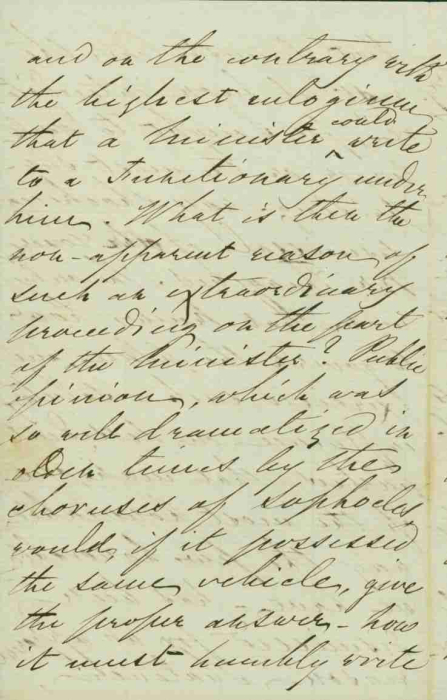 and on the contrary with
the highest eulogium
that a Minister could write
to a Functionary under
him. What is then the
non-apparent reason of
such an extraordinary
proceeding on the part
of the Minister? Public
opinion, which was
so well dramatized in
olden times by the
choruses of Sophocles,
would, if it possessed
the same vehicle, give
the proper answer - how
it must humbly write